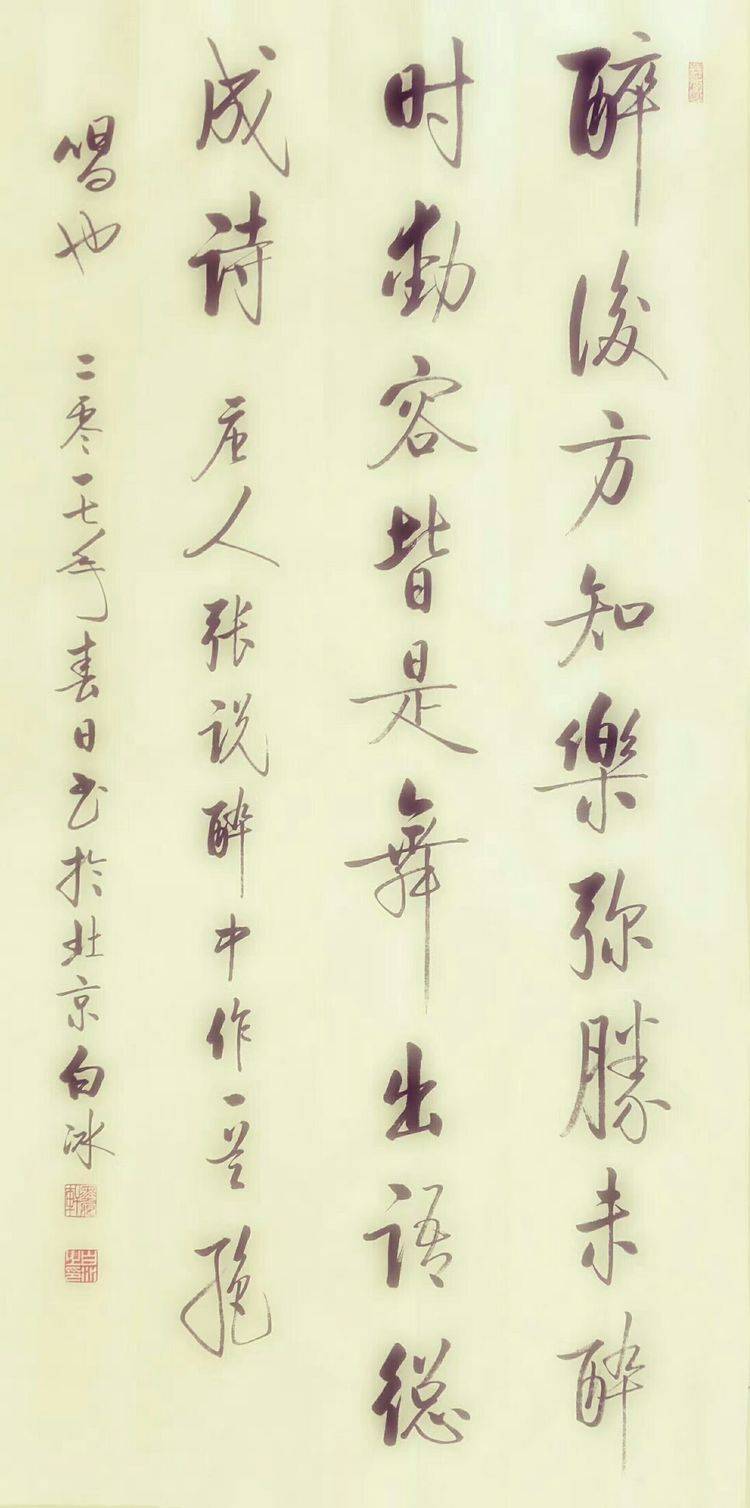 醉後方知樂弥勝未醉
时動容皆是舞出语總
成诗 唐人张说醉中作一首 絶
唱也 二零一七年春日书於北京白冰